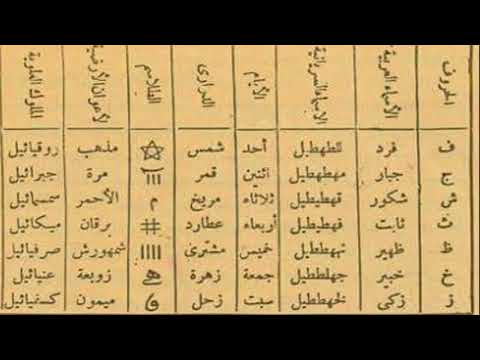 الحروف الأسماء العربية الأسماء السريانية الأيام الدرارى الطلاسم الأعوان الأرضية الملوك العلوية
ف فرد للطهطيل أحد شمس مذهب روقيائيل
ج جبار مهطهطيل اثنين قمر مرة جبرائيل
ش شكور قهطيطيل ثلاثاء مريخ م الأحمر سمسمائيل
ث ثابت فهطيطيل أربعاء عطارد # برقان ميكائيل
ظ ظهير نهههططيل خميس مشترى |||| شمهورش صرفيائيل
خ خبير جهلططيل جمعة زهرة زوبعة عنيائيل
ز زكى لخهططيل سبت زحل ميمون كسفيائيل